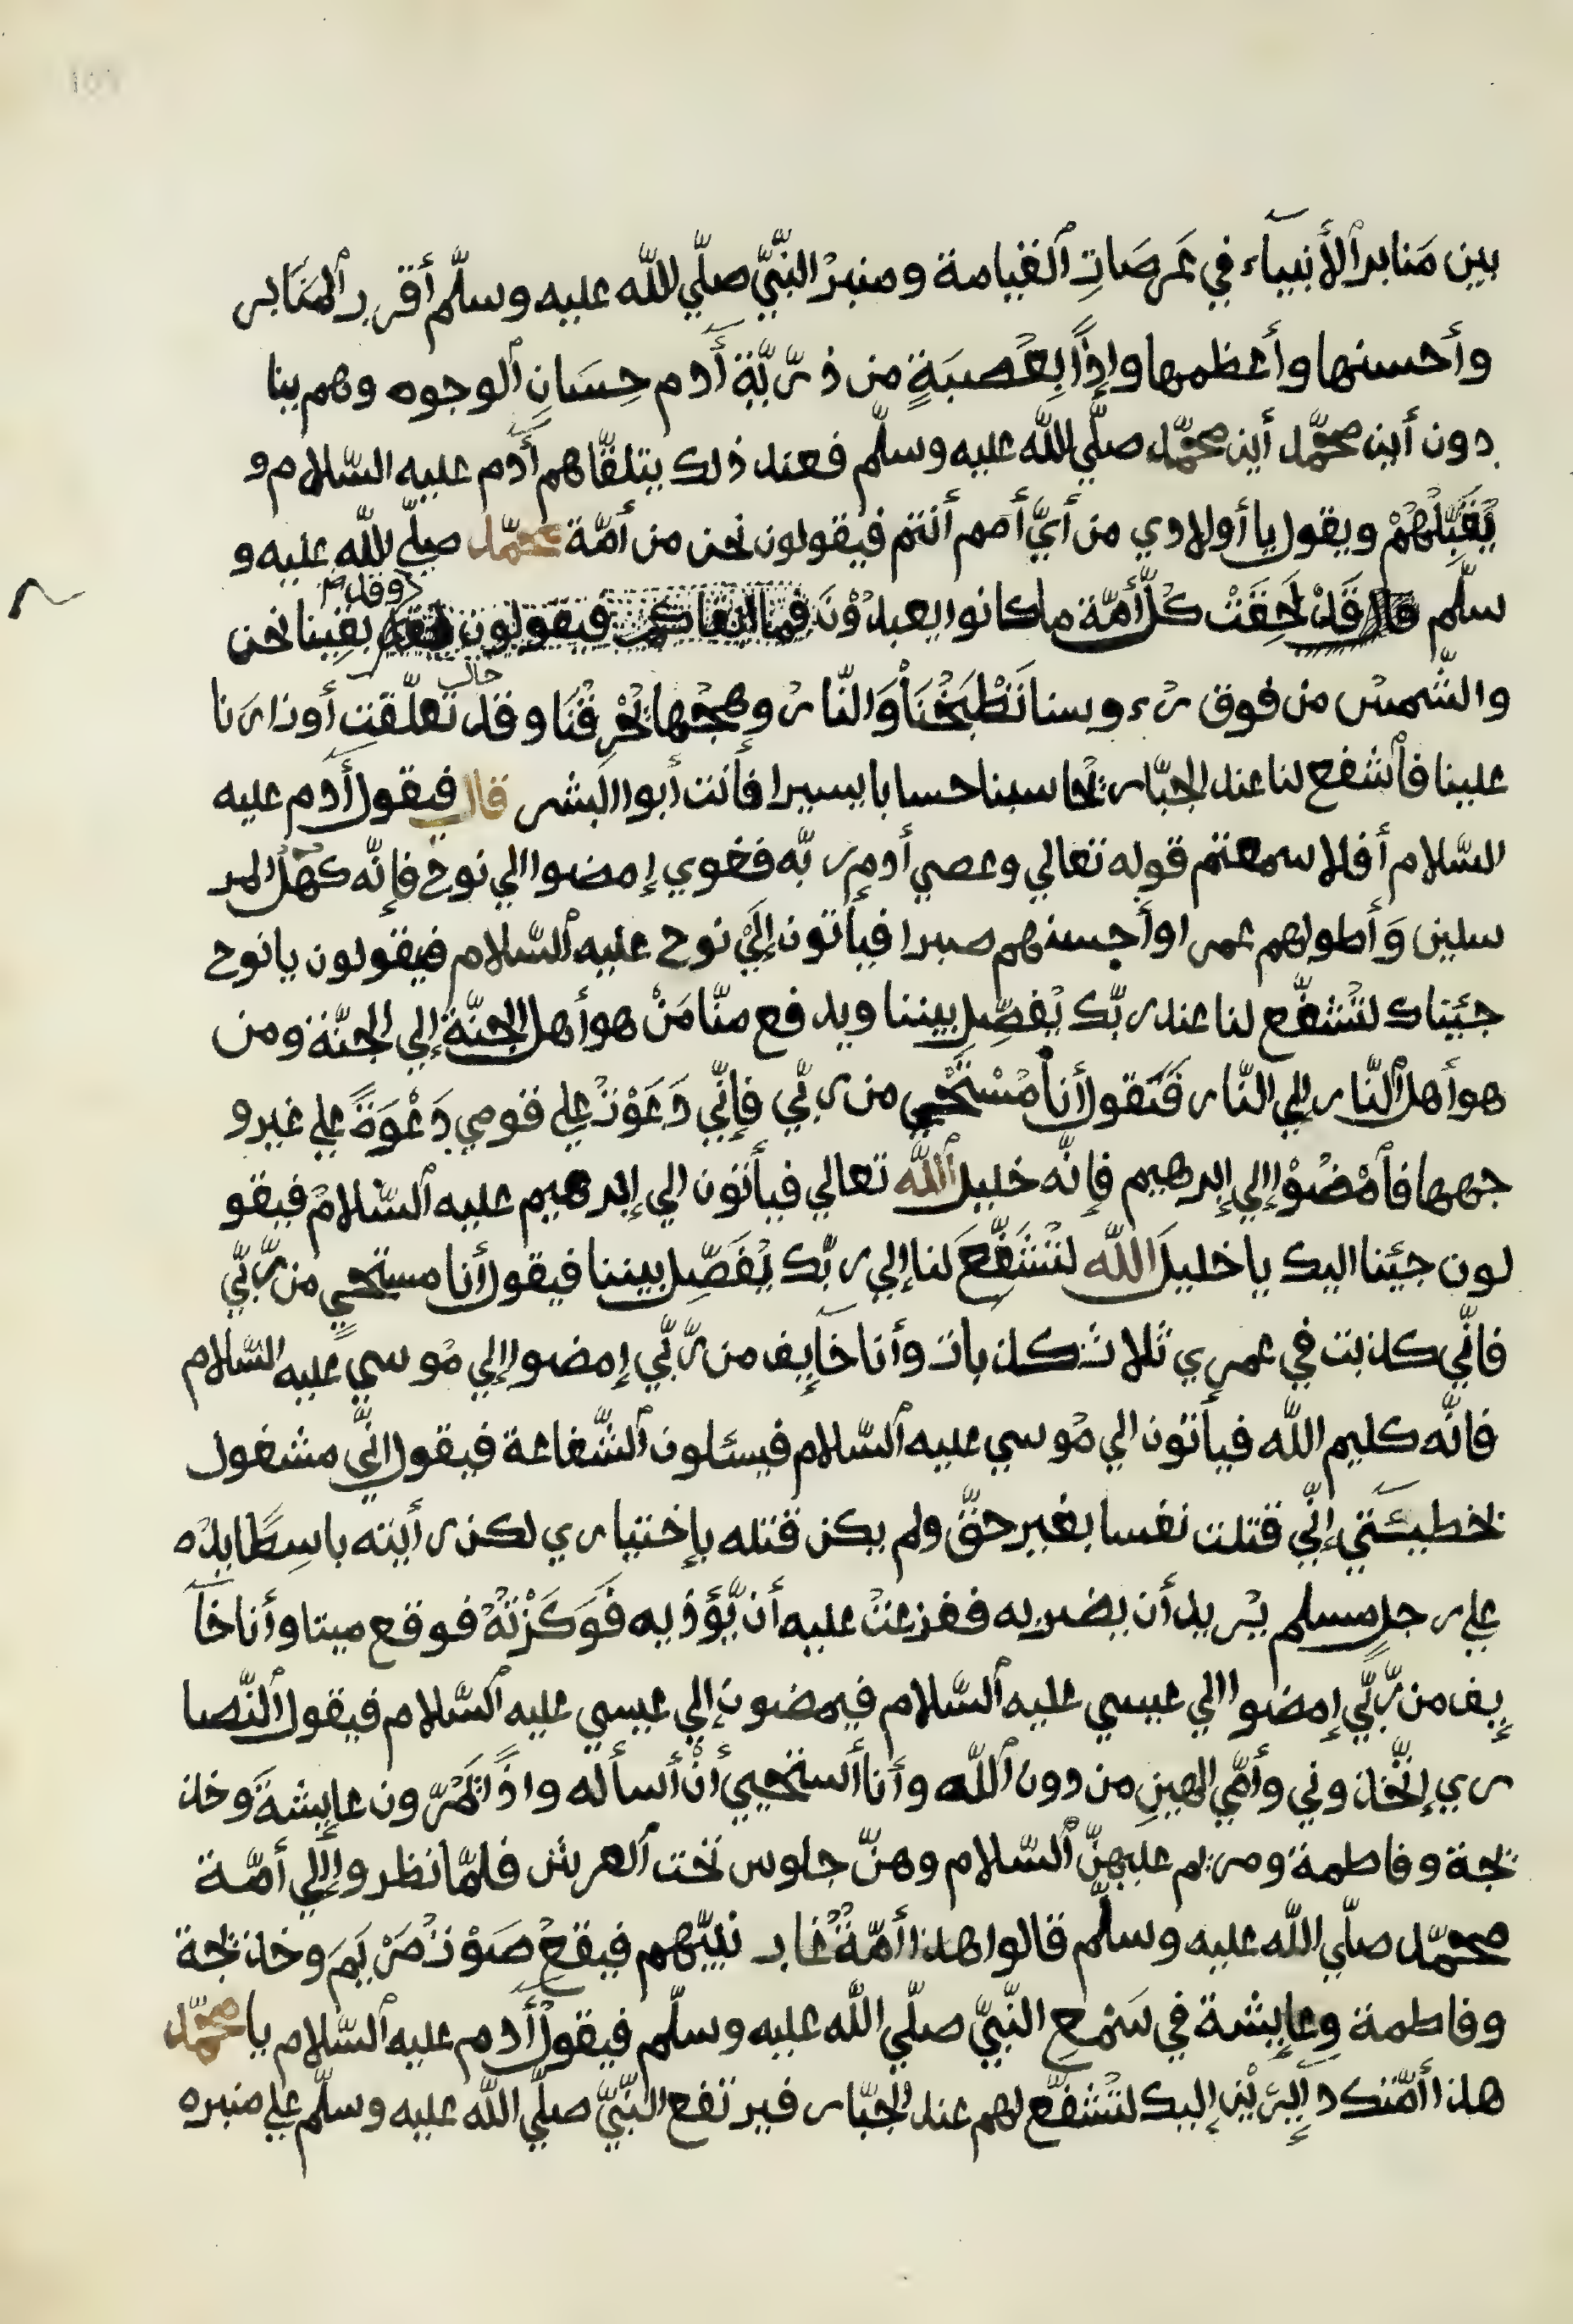 بين مَنابر ٱلأنبيآء في عَرصَاتِ ٱلقيامة ومنبرُ النّبيّ صلّي الله عليه وسلّم أقرب ٱلمَنَابر
وأحسنها وأعظمها وإذاً بِعُصبَةٍ من ذرّيّة أدم حِسَانِ ٱلوجوه وهم ينا
دون أين محمّد أين محمّد صلّي الله عليه وسلّم فعند ذلك يتلقّاهم أدم عليه السّلام و
يُقَبِّلُهُمْ ويقول يا أولادي من أيّ أمم أنتم فيقولون نحن من أمّة محمّد صلّي الله عليه و
سلّم قال قَدْ لَحِقَتْ كلّ أمّة ما كانوا يعبدُوْنَ فما ابقاكم فيقولون وقد بقينا نحن
والشّمسُ من فوق رُءوسنا تَطْبَخُنَا وَالنّارُ وهجُها تُحْرِقُنَا وقد تعلّقت أوزارنا
علينا فٱشفع لنا عند الجبّار يُحاسبنا حسابا يسيرا فأنت أبوا البشر قال فيقول أدم عليه
السّلام أفلا سمعتم قوله تعالي وعصي أدم ربّه فغوي إمضوا الي نوح فإنّه كهل المر
سلين وَأطولهم عمرا وأحسنهم صبرا فيأتون إلَيْ نوح عليه ٱلسّلام فيقولون يا نوح
جئيناك لتُشفّع لنا عند ربّك يُفصِّل بيننا ويدفع منّا مَنْ هو أهل الجنّة إلي الجنّة ومن
هو أهل ٱلنّار إلي النّار فَيَقول أنا مُسْتَحْيٍ من ربّي فإنّي دَعَوْتُ علي قومي دَعْوَةً علي غير و
جهها فٱمْضُوْا إلي إبرهيم فإنّه خليل ٱلله تعالي فيأتون الي إبرهيم عليه ٱلسّلامُ فيقو
لون جئينا اليك يا خليلَ الله لتُشَفّعَ لنا إلي ربّك يُفَصِّل بيننا فيقول أنا مستحي من رّبّي
فانّي كذبت في عمرِي ثلاث كذبات وأنا خآيف من رّبّي إمضوا إلي مُوسي عليه السّلام
فانّه كليم الله فيأتون الي مُوسي عليه ٱلسّلام فيسئلون ٱلشّفاعة فيقول انّي مشغول
بخطيئَتي إنّي قتلت نفسا بغير حقّ ولم يكن قتله بإختياري لكن رأيته باسِطًا يدُه
علي رجلٍ مسلم يُريد أن يضربه ففزعتُ عليه أن يّؤذيه فَوَكَزْتُهُ فوقع ميتا وأنا خآ
يف من رّبّي إمضوا الي عيسي عليه السّلام فيمضون إلي عيسي عليه ٱلسّلام فيقول ٱلنّصا
ري إتّخذوني وأمّي الهينِ من دون ٱلله وأنا أستحيي أنْ أسأله وإذًا تَمُرّون عايشةَ وخذ
يجة وفاطمة ومريم عليهنّ ٱلسّلام وهنّ جلوس تحت ٱلعرش فلمّا نظروا إلي أمّة
محمّد صلّي الله عليه وسلّم قالوا هذا أمّةُ غاب نبيّهم فيقعُ صَوْتُ مَرْيَمَ وخذيجة
وفاطمة وعايشة في سَمْعِ النّبيّ صلّي الله عليه وسلّم فيقول أدم عليه ٱلسّلام يا محمّد
هذا أمّتك دآيرَيْنِ إليك لتُشفّع لهم عند الجبّار فيرتفع النّبيّ صلّي الله عليه وسلّم علي منبره